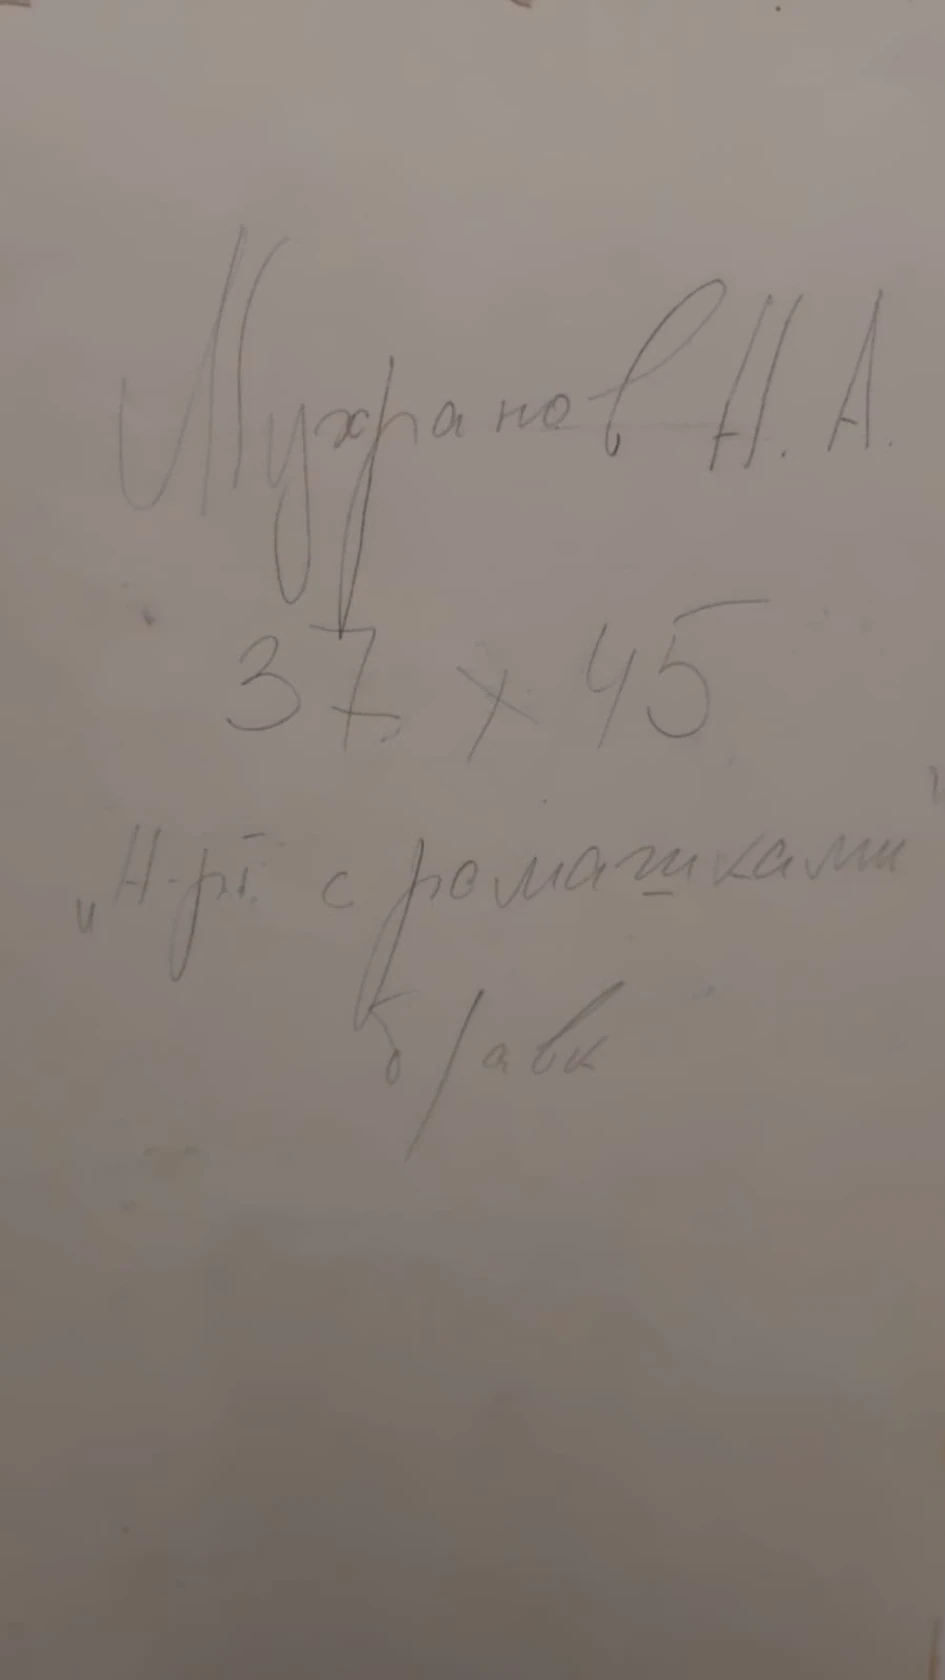 Мухранов Н. А.
37 х 45
„Н-рт. с ромашками"
б/авк